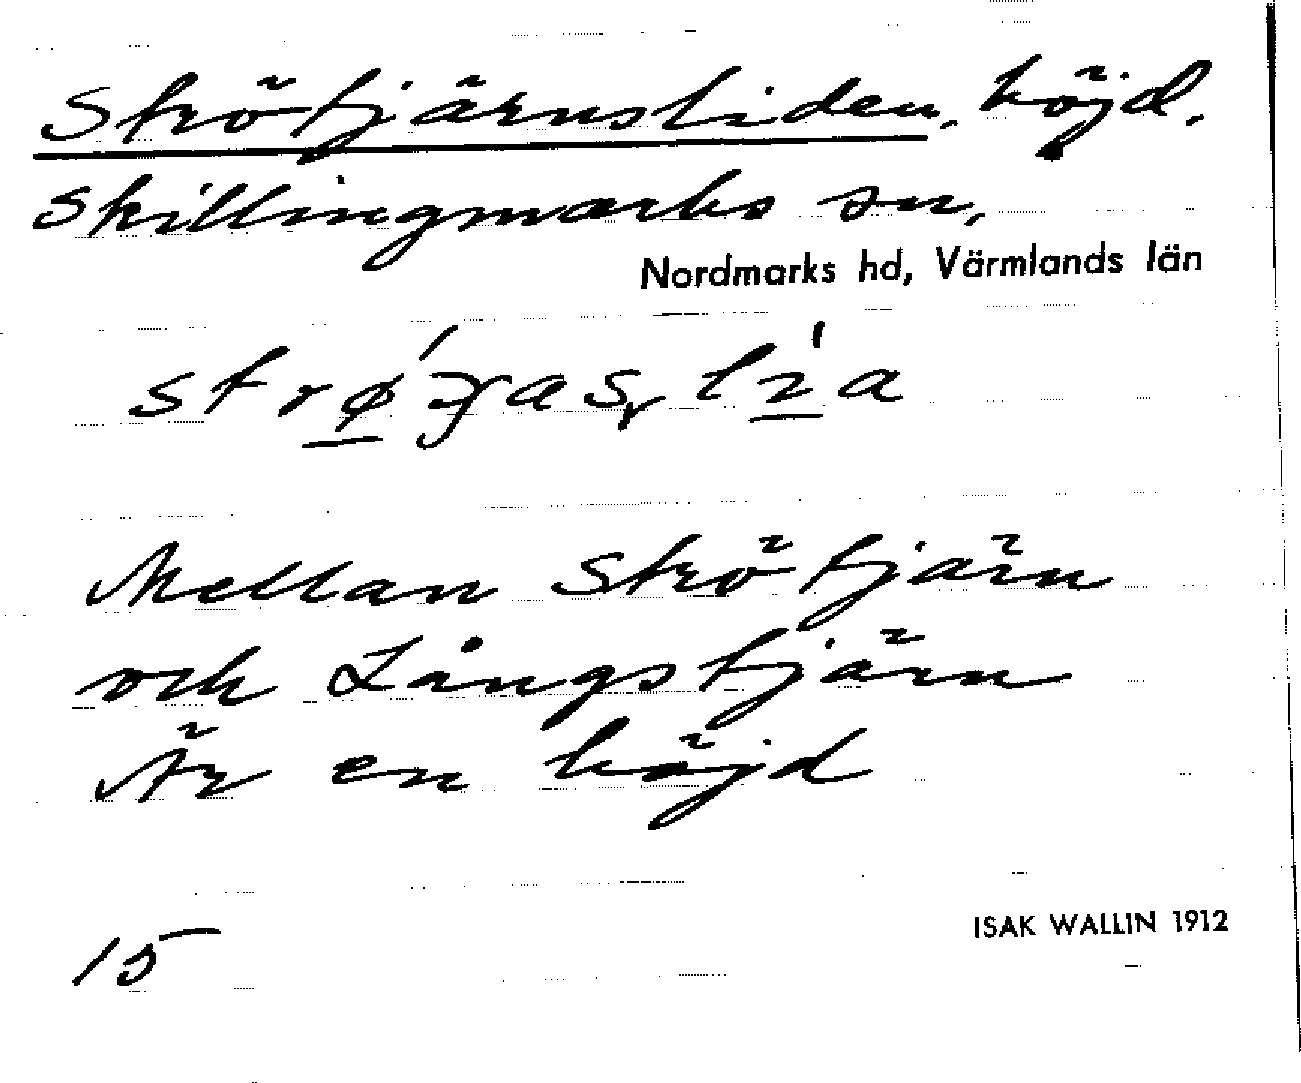 Strötjärnsliden, höjd.
Skillingmarks sn,
Nordmarks hd, Värmlands län
Mellan Strötjärn
och Långstjärn
Är en höjd
ISAK WALLIN 1912
15